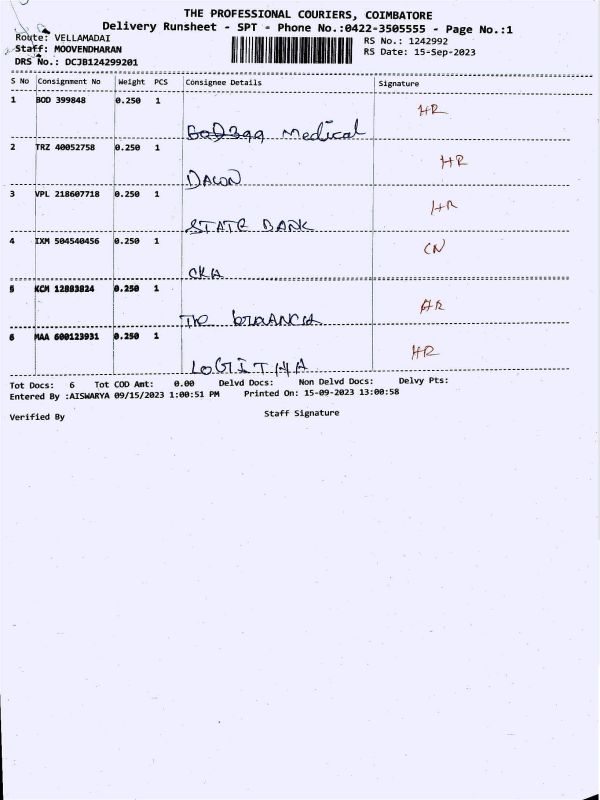 THE PROFESSIONAL COURIERS, COIMBATORE
Delivery Runsheet - SPT - Phone No.:0422-3505555 - Page No.:1
Route: VELLAMADAI
RS No.: 1242992
Staff: MOOVENDHARAN
RS Date: 15-Sep-2023
DRS No.: DCJB124299201
S No Consignment No Weight PCS Consignee Details Signature
1 BOD 399848 0.250 1 HR
Medical
2 TRZ 40052758 0.250 1 HR
DACON
3 VPL 218607718 0.250 1 HR
STATE BANK
4 IXM 504540456 0.250 1 CN
CKA
5 KCM 12883824 0.250 1 HR
6 MAA 600123931 0.250 1 HR
LOGITHA
Tot Docs: 6 Tot COD Amt: 0.00 Delvd Docs: Non Delvd Docs: Delvy Pts:
Entered By :AISWARYA 09/15/2023 1:00:51 PM Printed On: 15-09-2023 13:00:58
Verified By Staff Signature